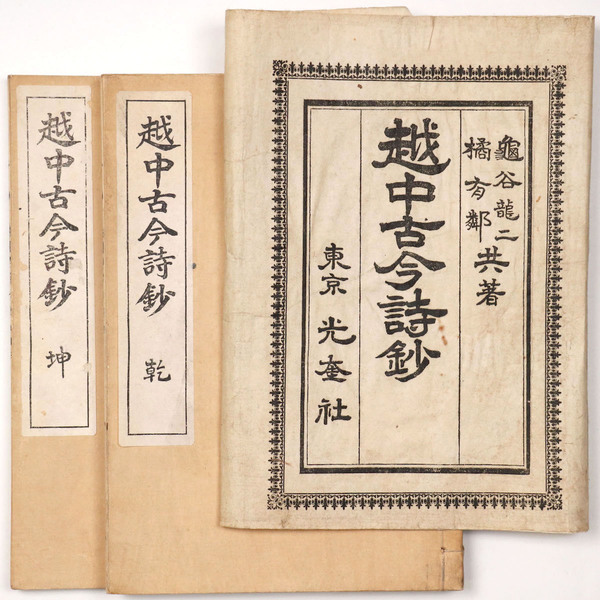 龜谷龍二
橘有鄰
共著
越中古今詩鈔
東京 光奎社
越中古今詩鈔
乾
越中古今詩鈔
坤